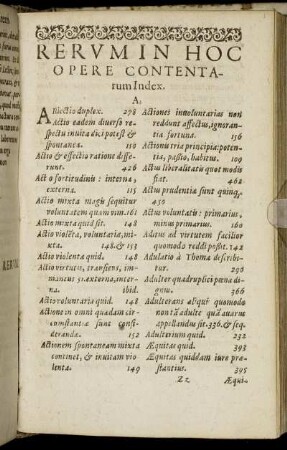 RERVM IN HOC
OPERE CONTENTA-
rum Index.
A.
ABiectio duplex. 278
Actio eadem diuerso re-
spectu inuita dici potest &
spontanea. 150
Actio & effectio ratione diffe-
runt. 426
Actio fortitudinis: interna,
externa. 115
Actio mixta magis sequitur
voluntatem quam vim. 161
Actio mixta quid sit. 148
Actio violēta, voluntaria, mi-
xta. 148. & 153
Actio violenta quid. 148
Actio virtutum, transiens, im-
manens: interna, externa.
Actio voluntaria quid. 148
Actione in omni quædam cir-
cunstantiæ sunt consi-
derandæ. 152
Actionem spontaneam mixta
continet, & inuitam vio
lenta. 149
Actiones inuoluntarias non
reddunt affectus, ignoran-
tia fortuna. 156
Actionū tria principia: poten-
tia, passio, habitus. 109
Actus liberalitatis quot modis
fiat. 462
Actus prudentia sunt quinq́;
450
Actus voluntatis: primarius,
minus primarius. 160
Adam ad virtutem facilius
quomodo reddi possit. 142
Adulatio à Thoma describi-
tur. 298
Adulter quadruplici pœna di-
gnus. 366
Adulterans absq́; quomodo
non tā adulter quā auarus
appellandus sit. 336. & seq.
Adulterium quid. 232
Æquitas quid. 393
Æquitas quiddam iure præ-
stantius. 395
Zz Æqui-